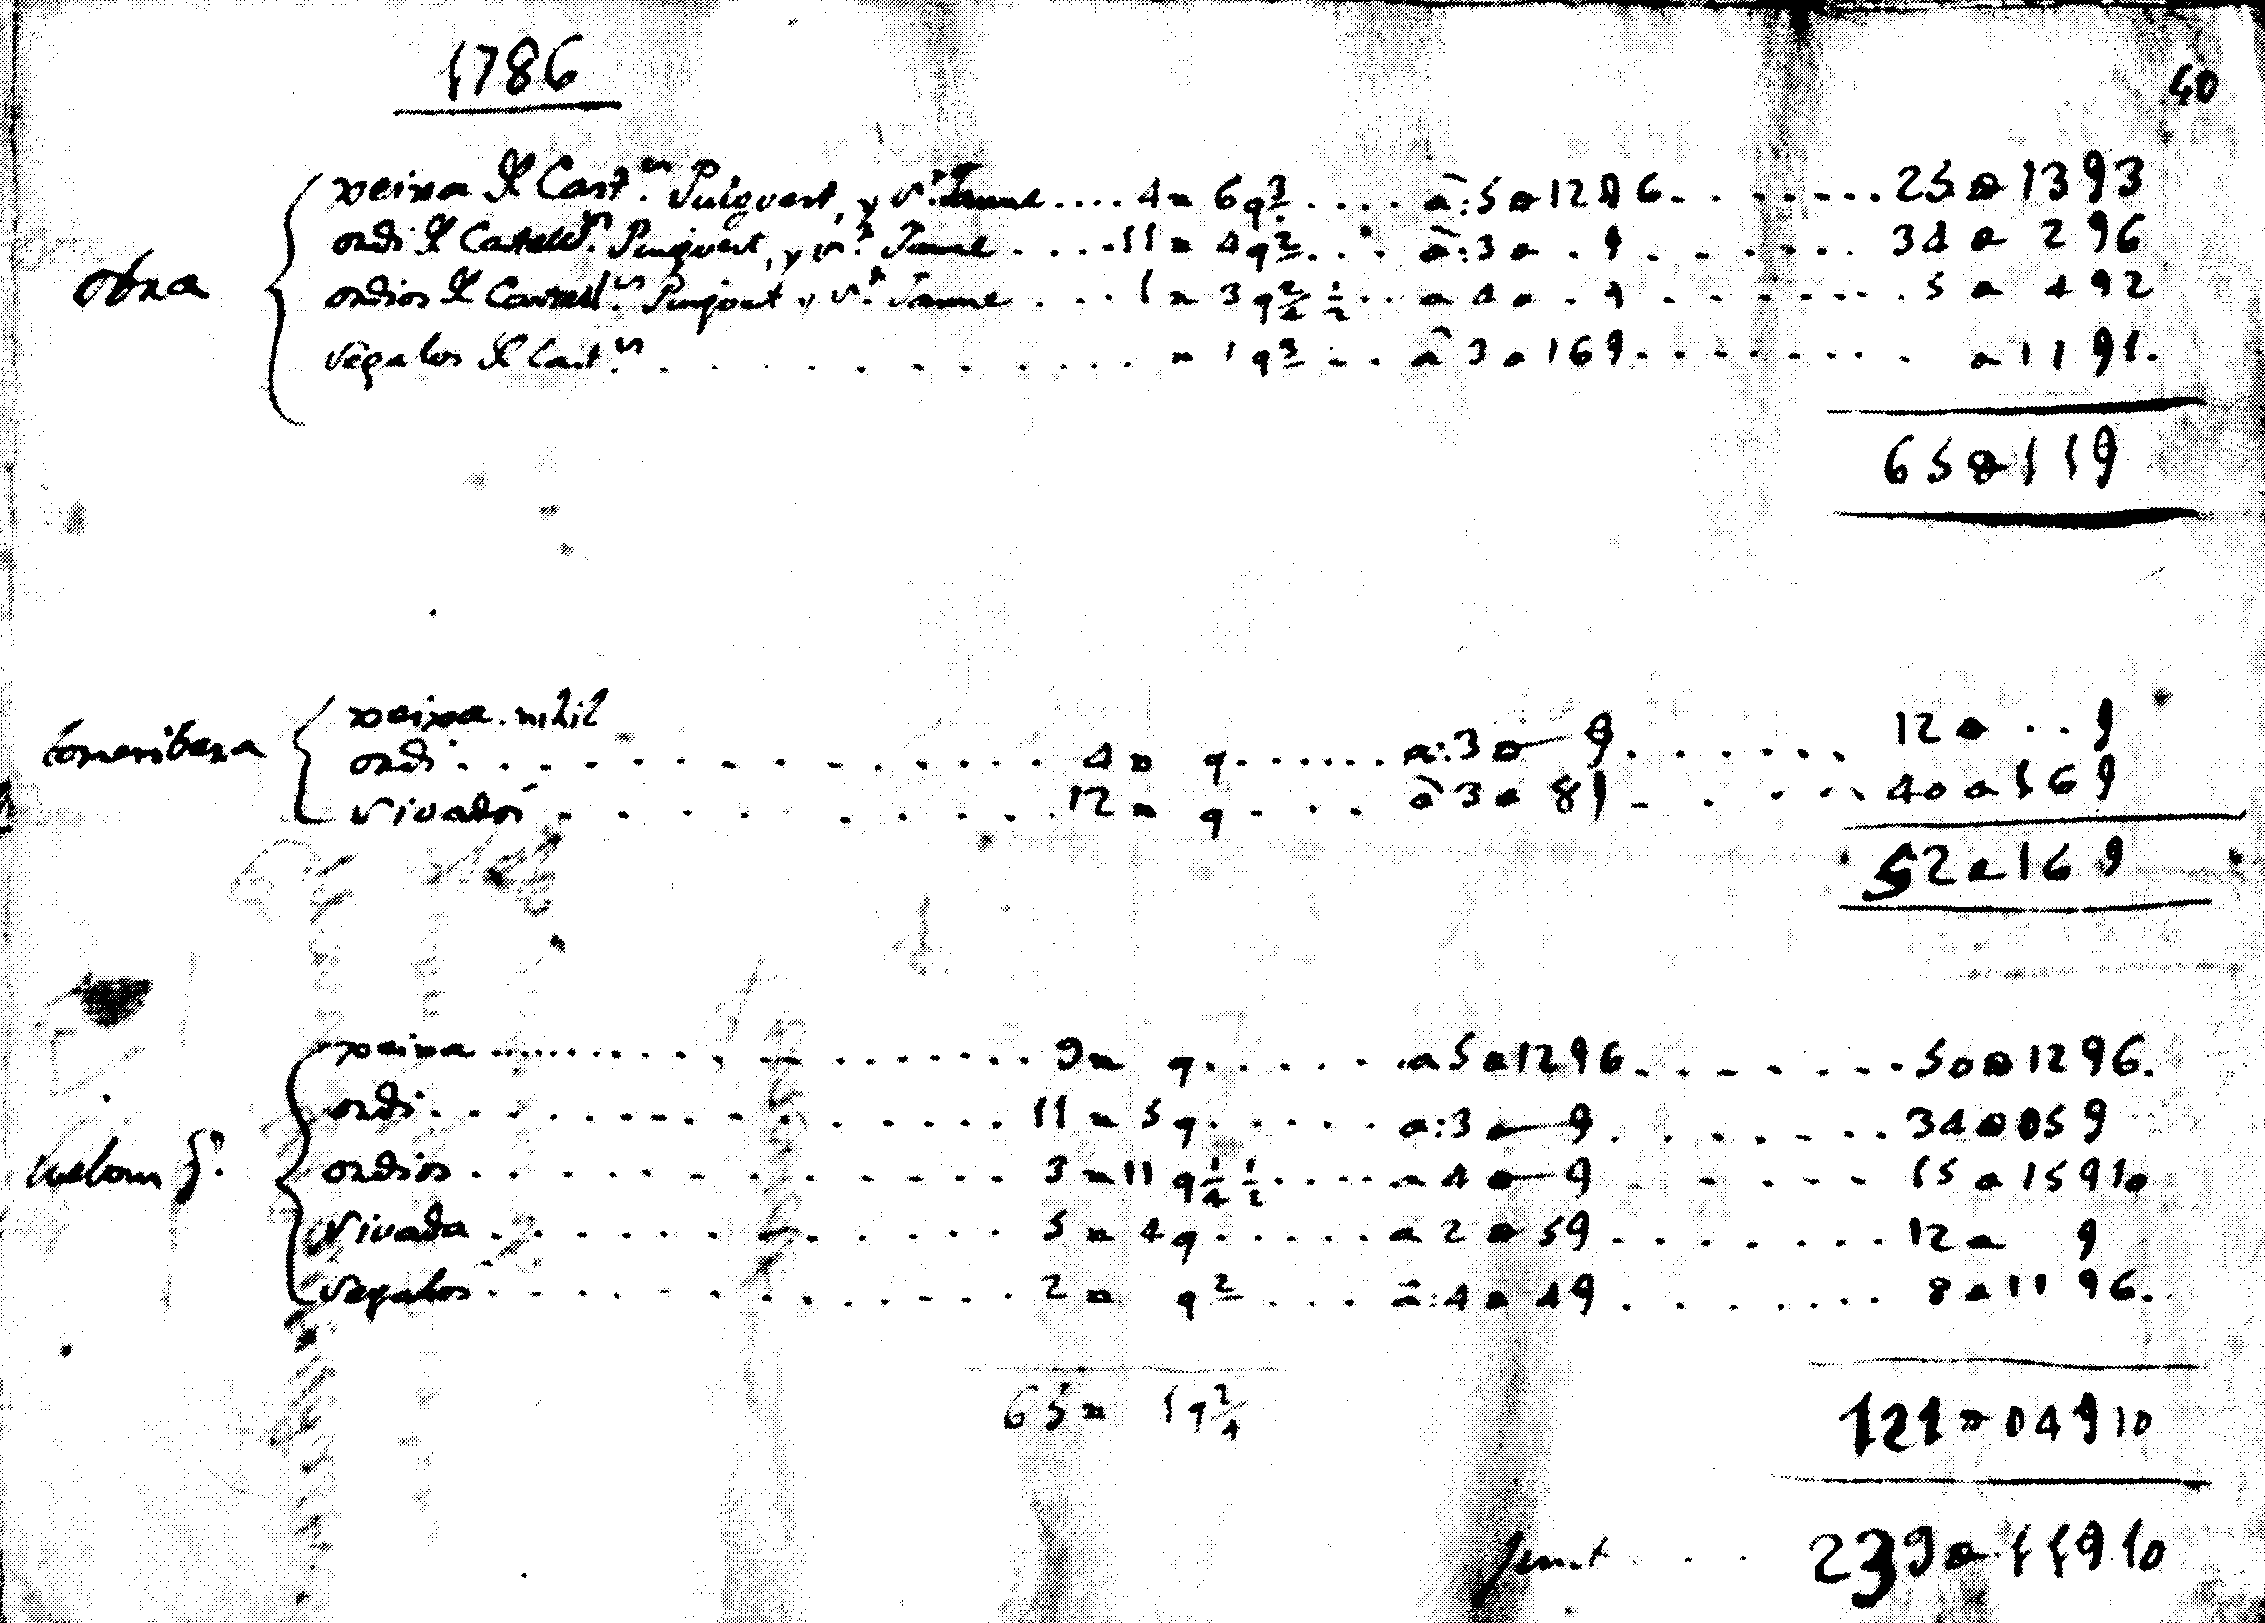 1786
40
obra
xeixa de Cast.ⁿ Puigvert, y Sⁿ. Jaume .... 4 a 6 q 3 .... a: 5 a 12 9 6 ....... 25 a 13 9 3
ordi de Castell.ⁿ Puigvert, y Sⁿ. Jaume .... 11 a 4 q 2 .... a: 3 a . 9 ....... 34 a 2 9 6
ordios de Castell.ⁿ Puigvert y Sⁿ. Jaume ... 1 a 3 q 2/4 1/2 .. a 4 a . 9 ....... 5 a 4 9 2
segalos de Cast.ⁿ ........... a 1 q 3 ... a 3 a 16 9 ....... a 11 9 1.
65 a 11 9
xeixa. nihil
ordi ............. 4 a q ...... a: 3 a — 9 ...... 12 a .. 9
sivadós ......... 12 a q ... a 3 a 8 9 .... 40 a 16 9
52 a 16 9
xeixa ............. 9 a q ..... a 5 a 12 9 6 ....... 50 a 12 9 6.
ordi ............. 11 a 5 q ..... a: 3 a — 9 ....... 34 a 05 9
ordios ........... 3 a 11 q 1/4 1/2 ..... a 4 a — 9 ...... 15 a 15 9 10
sivada ........... 5 a 4 q ..... a 2 a 5 9 ....... 12 a 9
segalos .......... 2 a q 2 ... a: 4 a 4 9 ....... 8 a 11 9 6.
65 a 1 q 2/4
121 a 04 9 10
junt ... 239 a 11 9 10